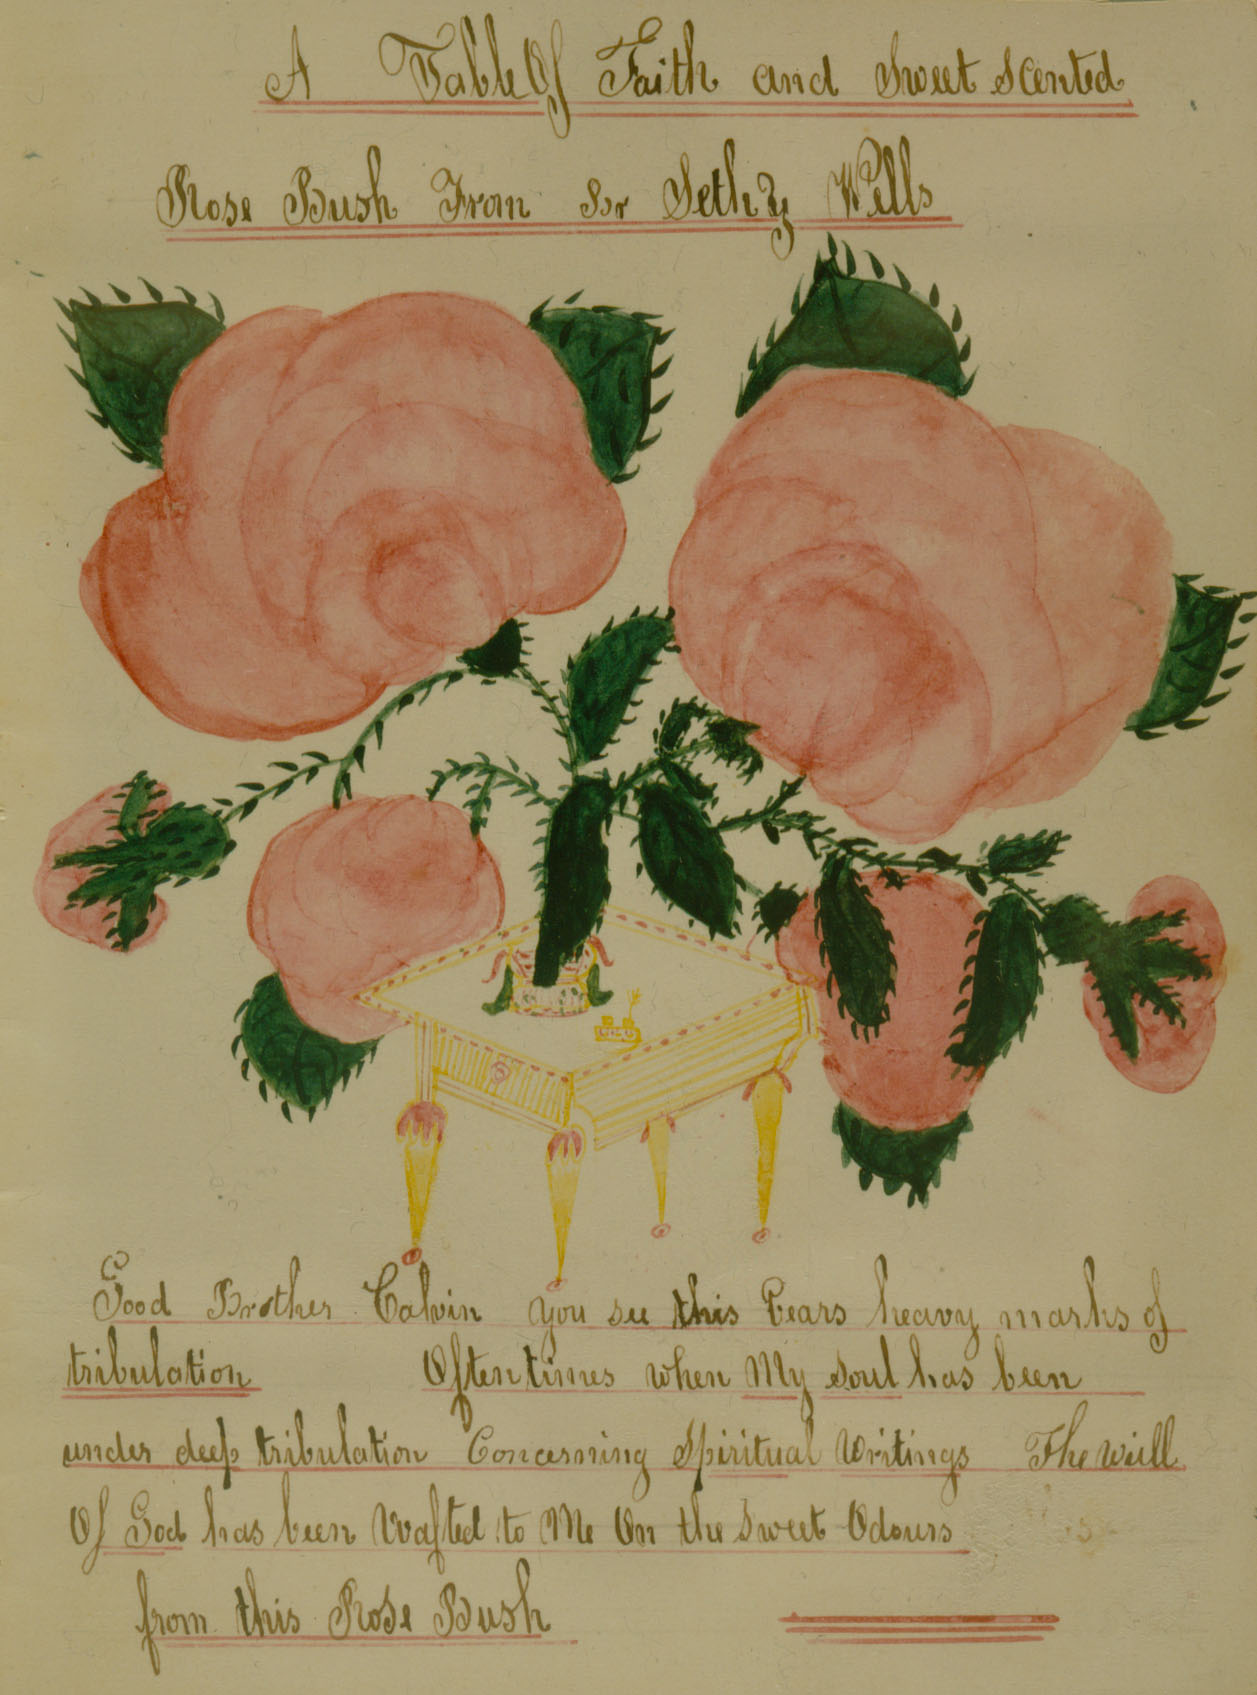 A Table Of Faith and Sweet Scented
Rose Bush From Br Seth Y Wells
Good Brother Calvin you see this Bears heavy marks of
tribulation Oftentimes when My Soul has been
under deep tribulation Concerning Spiritual Writings The will
Of God has been Wafted to Me On the Sweet Odours
from this Rose Bush